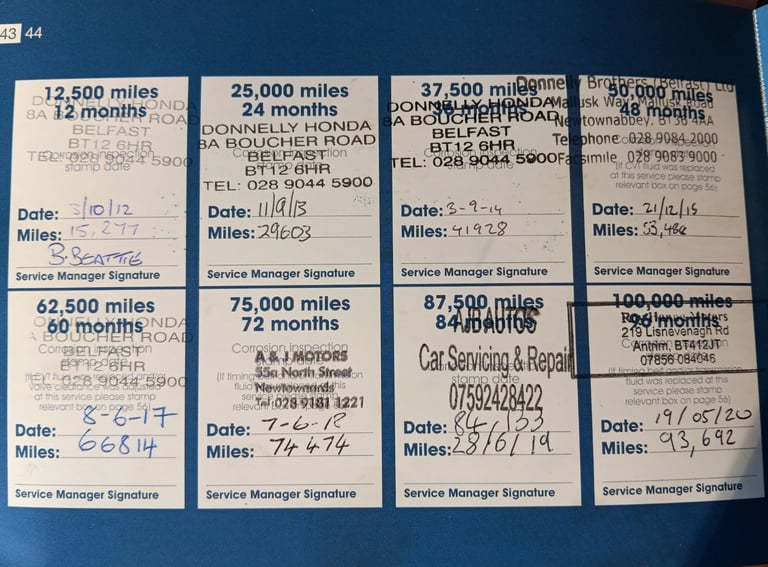 43 44
12,500 miles
12 months
DONNELLY HONDA
8A BOUCHER ROAD
BELFAST
BT12 6HR
Corrosion inspection
TEL: 028 9044 5900
stamp date
Date: 3/10/12
Miles: 15,277
B. BEATTIE
Service Manager Signature
25,000 miles
24 months
DONNELLY HONDA
8A BOUCHER ROAD
Corrosion inspection
BELFAST
BT12 6HR
TEL: 028 9044 5900
Date: 11/9/13
Miles: 29603
Service Manager Signature
37,500 miles
36 months
DONNELLY HONDA
8A BOUCHER ROAD
BELFAST
Corrosion inspection
BT12 6HR
TEL: 028 9044 5900
Date: 3-9-14
Miles: 41928
Service Manager Signature
Donnelly Brothers (Belfast) Ltd
50,000 miles
Mallusk Way, Mallusk Road
48 months
Newtownabbey, BT36 4AA
Telephone 028 9084 2000
Facsimile 028 9083 9000
(If CVT fluid was replaced
at this service please stamp
relevant box on page 56).
Date: 21/12/15
Miles: 53,486
Service Manager Signature
62,500 miles
60 months
DONNELLY HONDA
8A BOUCHER ROAD
Corrosion inspection
BELFAST
stamp date
BT12 6HR
028 9044 5900
at this service please stamp
relevant box on page 56)
Date: 8-6-17
Miles: 66814
Service Manager Signature
75,000 miles
72 months
Corrosion inspection
A & J MOTORS
55a North Street
Newtownards
Tel: 028 9181 1221
Date: 7-6-18
Miles: 74474
Service Manager Signature
87,500 miles
84 months
AJB AUTOS
Car Servicing & Repair
stamp date
07592428422
Date: 84,133
Miles: 28/6/19
Service Manager Signature
100,000 miles
96 months
Motors
219 Lisnevenagh Rd
Antrim, BT412JT
07856 084046
fluid was replaced at this
service please stamp
relevant box on page 56)
Date: 19/05/20
Miles: 93,692
Service Manager Signature